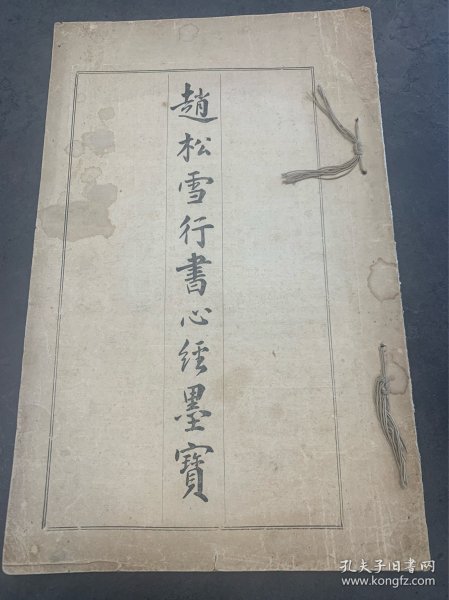 趙松雪行書心經墨寶
孔夫子旧书网
www.kongfz.com